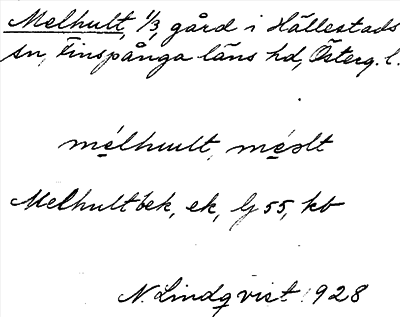 Melhult, 1/3, gård i Hällestads
sn, Finspånga läns hd, Österg. l.
mélhuult, méslt
Melhultbek, ek, Gj 55, kb
N. Lindqvist 1928